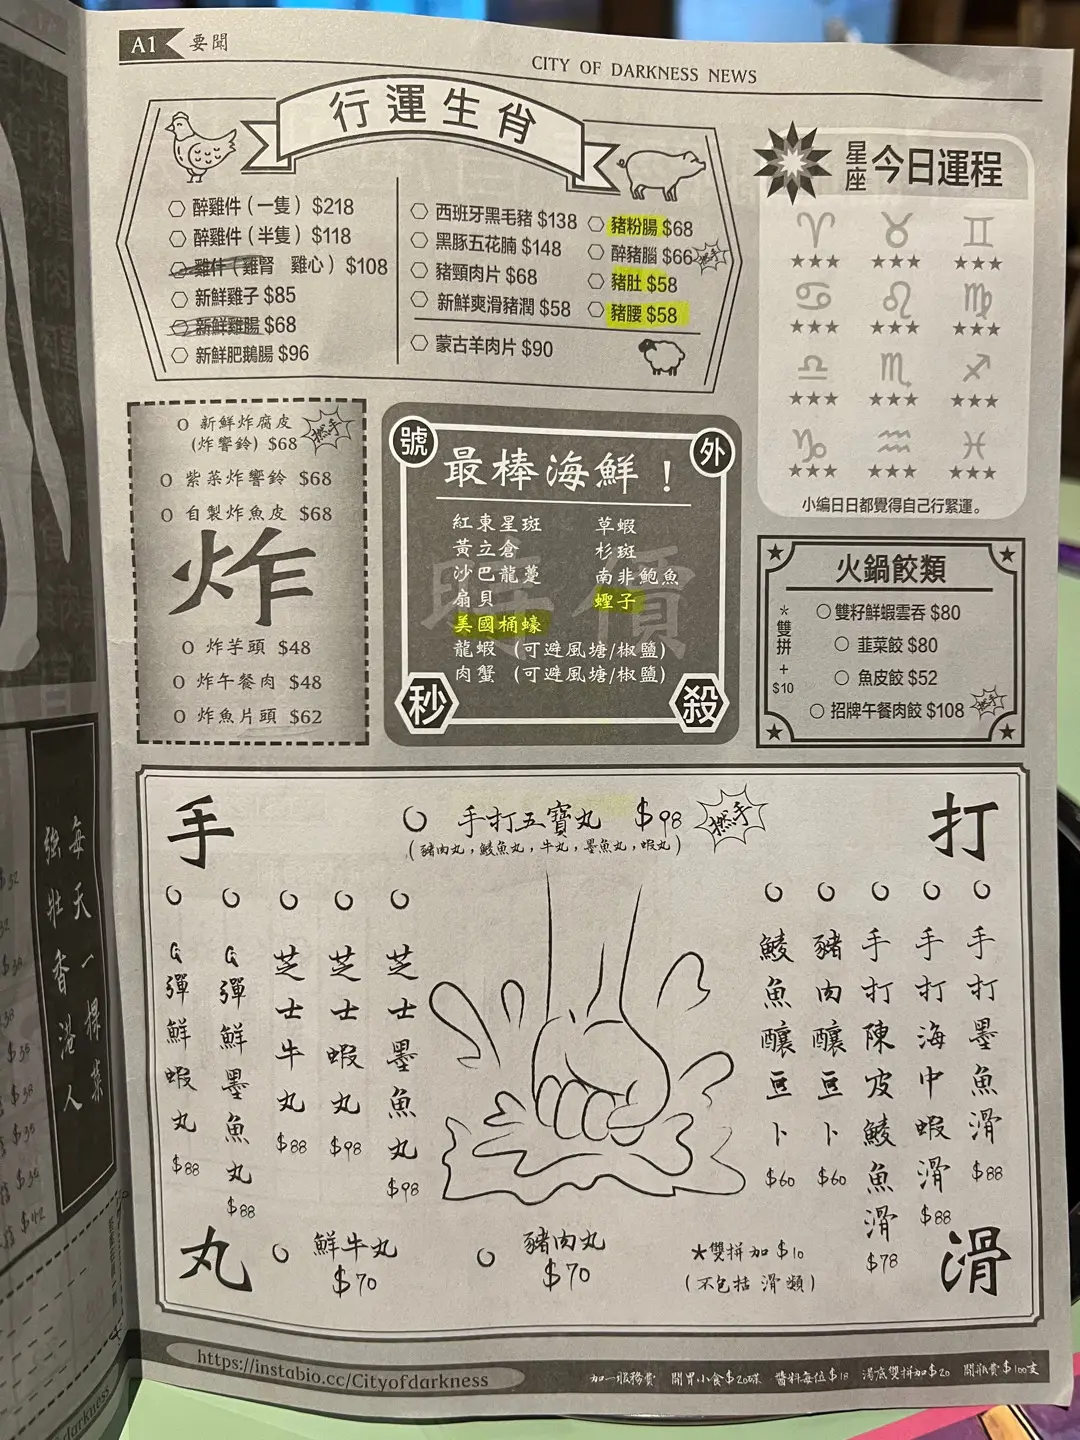 A1 要聞
CITY OF DARKNESS NEWS
行運生肖
醉雞件(一隻) $218
醉雞件(半隻) $118
雞件(雞腎 雞心) $108
新鮮雞子 $85
新鮮雞腸 $68
新鮮肥鵝腸 $96
西班牙黑毛豬 $138
黑豚五花腩 $148
豬頸肉片 $68
新鮮爽滑豬潤 $58
蒙古羊肉片 $90
豬粉腸 $68
醉豬腦 $66 撚手
豬肚 $58
豬腰 $58
星座 今日運程
♈ ♉ ♊
★★★ ★★★ ★★★
♋ ♌ ♍
★★★ ★★★ ★★★
♎ ♏ ♐
★★★ ★★★ ★★★
♑ ♒ ♓
★★★ ★★★ ★★★
小編日日都覺得自己行緊運。
新鮮炸腐皮
(炸響鈴) $68 撚手
紫菜炸響鈴 $68
自製炸魚皮 $68
炸
炸芋頭 $48
炸午餐肉 $48
炸魚片頭 $62
號外
最棒海鮮!
時價
紅東星斑
黃立倉
沙巴龍躉
扇貝
美國桶蠔
草蝦
杉斑
南非鮑魚
蟶子
龍蝦 (可避風塘/椒鹽)
肉蟹 (可避風塘/椒鹽)
秒殺
火鍋餃類
*雙拼+$10
雙籽鮮蝦雲吞 $80
韮菜餃 $80
魚皮餃 $52
招牌午餐肉餃 $108 撚手
手打丸滑
手打五寶丸 $98 撚手
(豬肉丸,鯪魚丸,牛丸,墨魚丸,蝦丸)
Q彈鮮蝦丸 $88
Q彈鮮墨魚丸 $88
芝士牛丸 $88
芝士蝦丸 $98
芝士墨魚丸 $98
鯪魚釀豆卜 $60
豬肉釀豆卜 $60
手打陳皮鯪魚滑 $78
手打海中蝦滑 $88
手打墨魚滑 $88
鮮牛丸 $70
豬肉丸 $70
★雙拼加 $10
(不包括 滑類)
每天一棵菜
強壯香港人
https://instabio.cc/Cityofdarkness
加一服務費 開胃小食$20碟 醬料每位$18 湯底雙拼加$20 開瓶費$100支